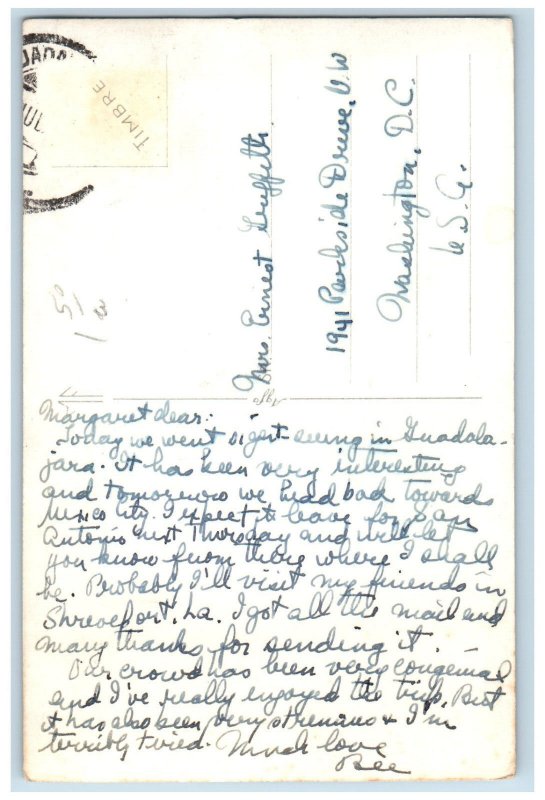 TIMBRE
Mrs. Ernest Griffith
1941 Parkside Drive, N.W
Washington, D.C.
U.S.A.
Agfa
Margaret dear:
Today we went sight-seeing in Guadala-
jara. It has been very interesting
and tomorrow we head back towards
Mexico City. I expect to leave for San
Antonio next Thursday and will let
you know from there where I shall
be. Probably I'll visit my friends in
Shreveport, La. I got all the mail and
many thanks for sending it.
Our crowd has been very congenial
and I've really enjoyed the trip. But
it has also been very strenuous & I'm
terribly tired. Much love
Bee